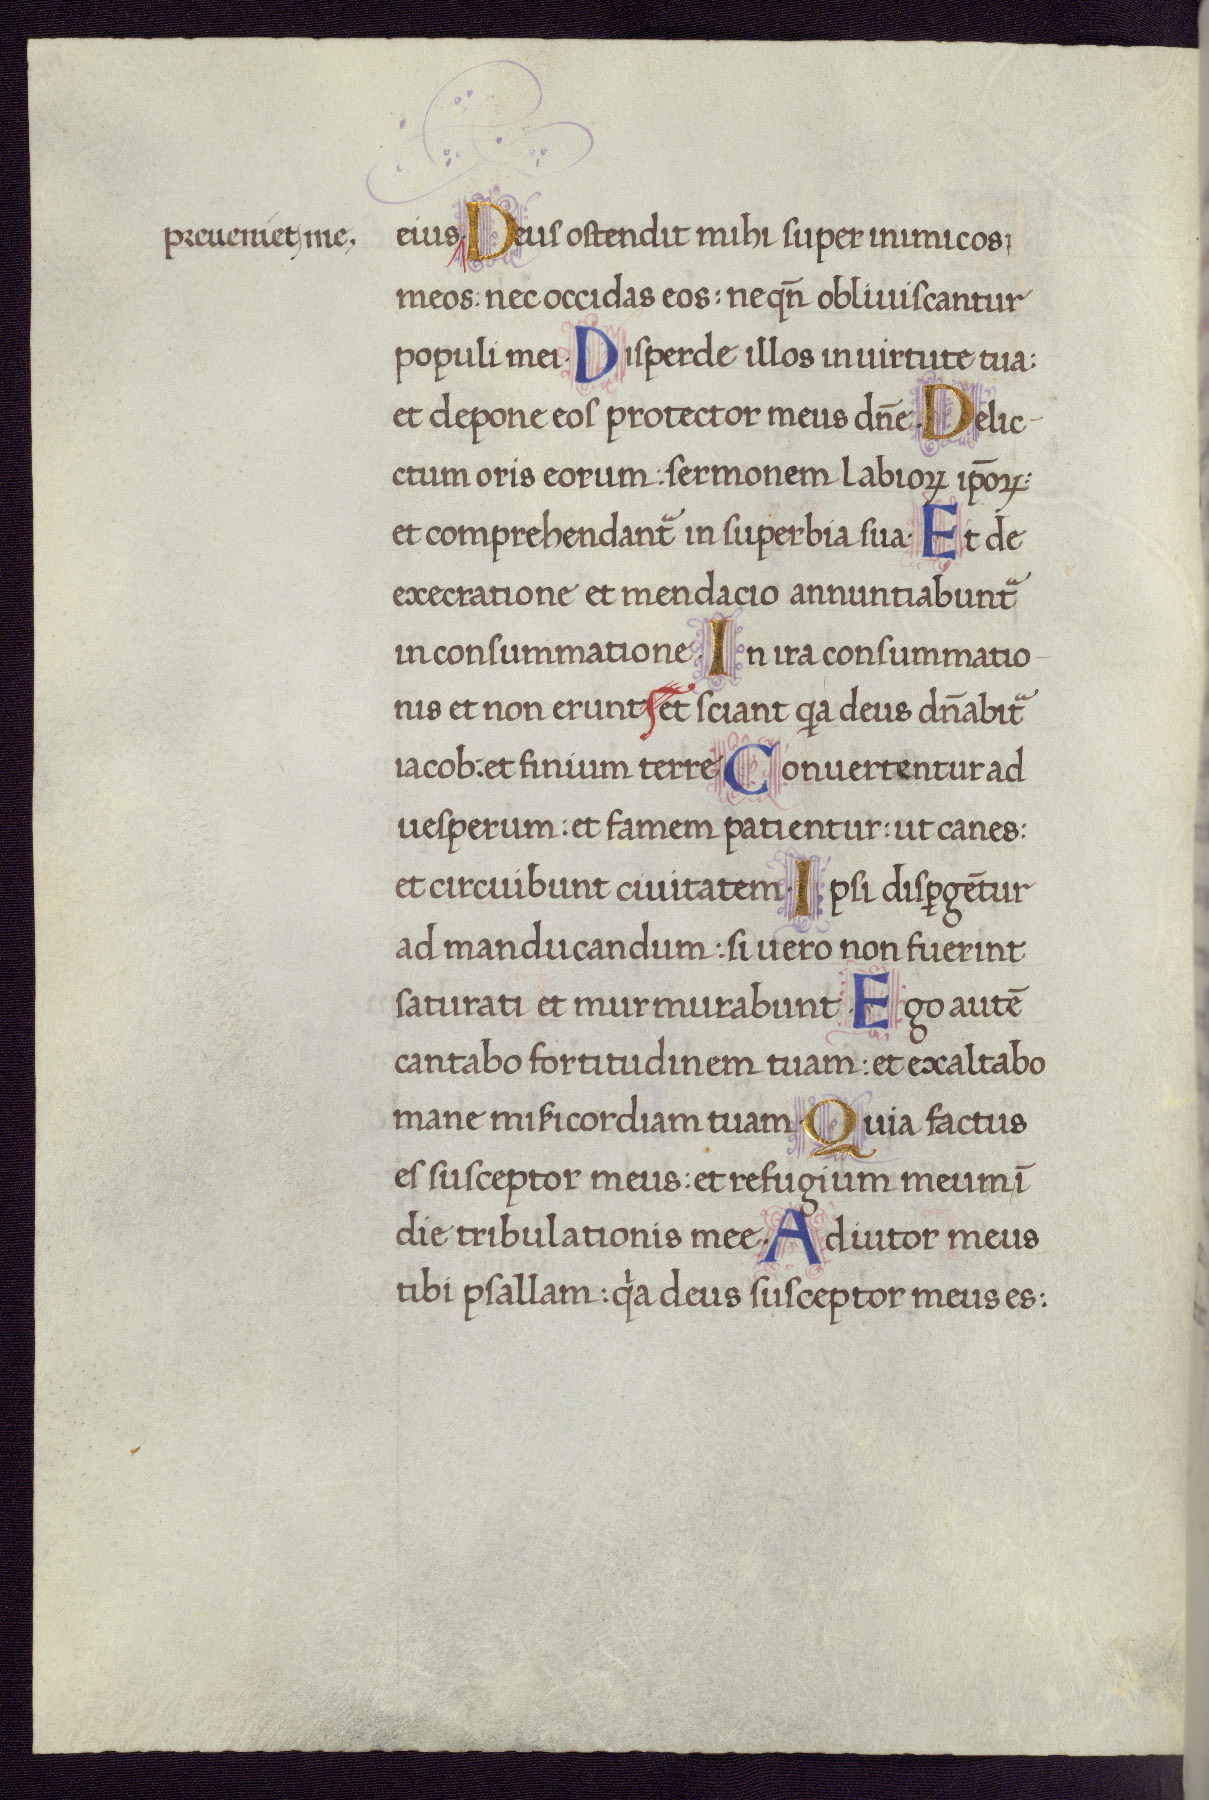 preueniet me,
eius. Deus ostendit mihi super inimicos
meos: nec occidas eos: neqn̄ obliuiscantur
populi mei. Disperde illos inuirtute tua:
et depone eos protector meus dn̄e. Delic-
ctum oris eorum: sermonem labioꝝ ip̄oꝝ:
et comprehendant᷑ in superbia sua. Et de
execratione et mendacio annuntiabunt᷑
in consummatione. In ira consummatio-
nis et non erunt et sciant qꝛa deus dn̄abit᷑
iacob: et finium terre. Conuertentur ad
uesperum: et famem patientur: ut canes:
et circuibunt ciuitatem. Ipsi disꝑgētur
ad manducandum: si uero non fuerint
saturati et murmurabunt. Ego autē
cantabo fortitudinem tuam: et exaltabo
mane mīs̄icordiam tuam. Quia factus
es susceptor meus: et refugium meum ī
die tribulationis mee. Adiutor meus
tibi psallam: qͥa deus susceptor meus es: